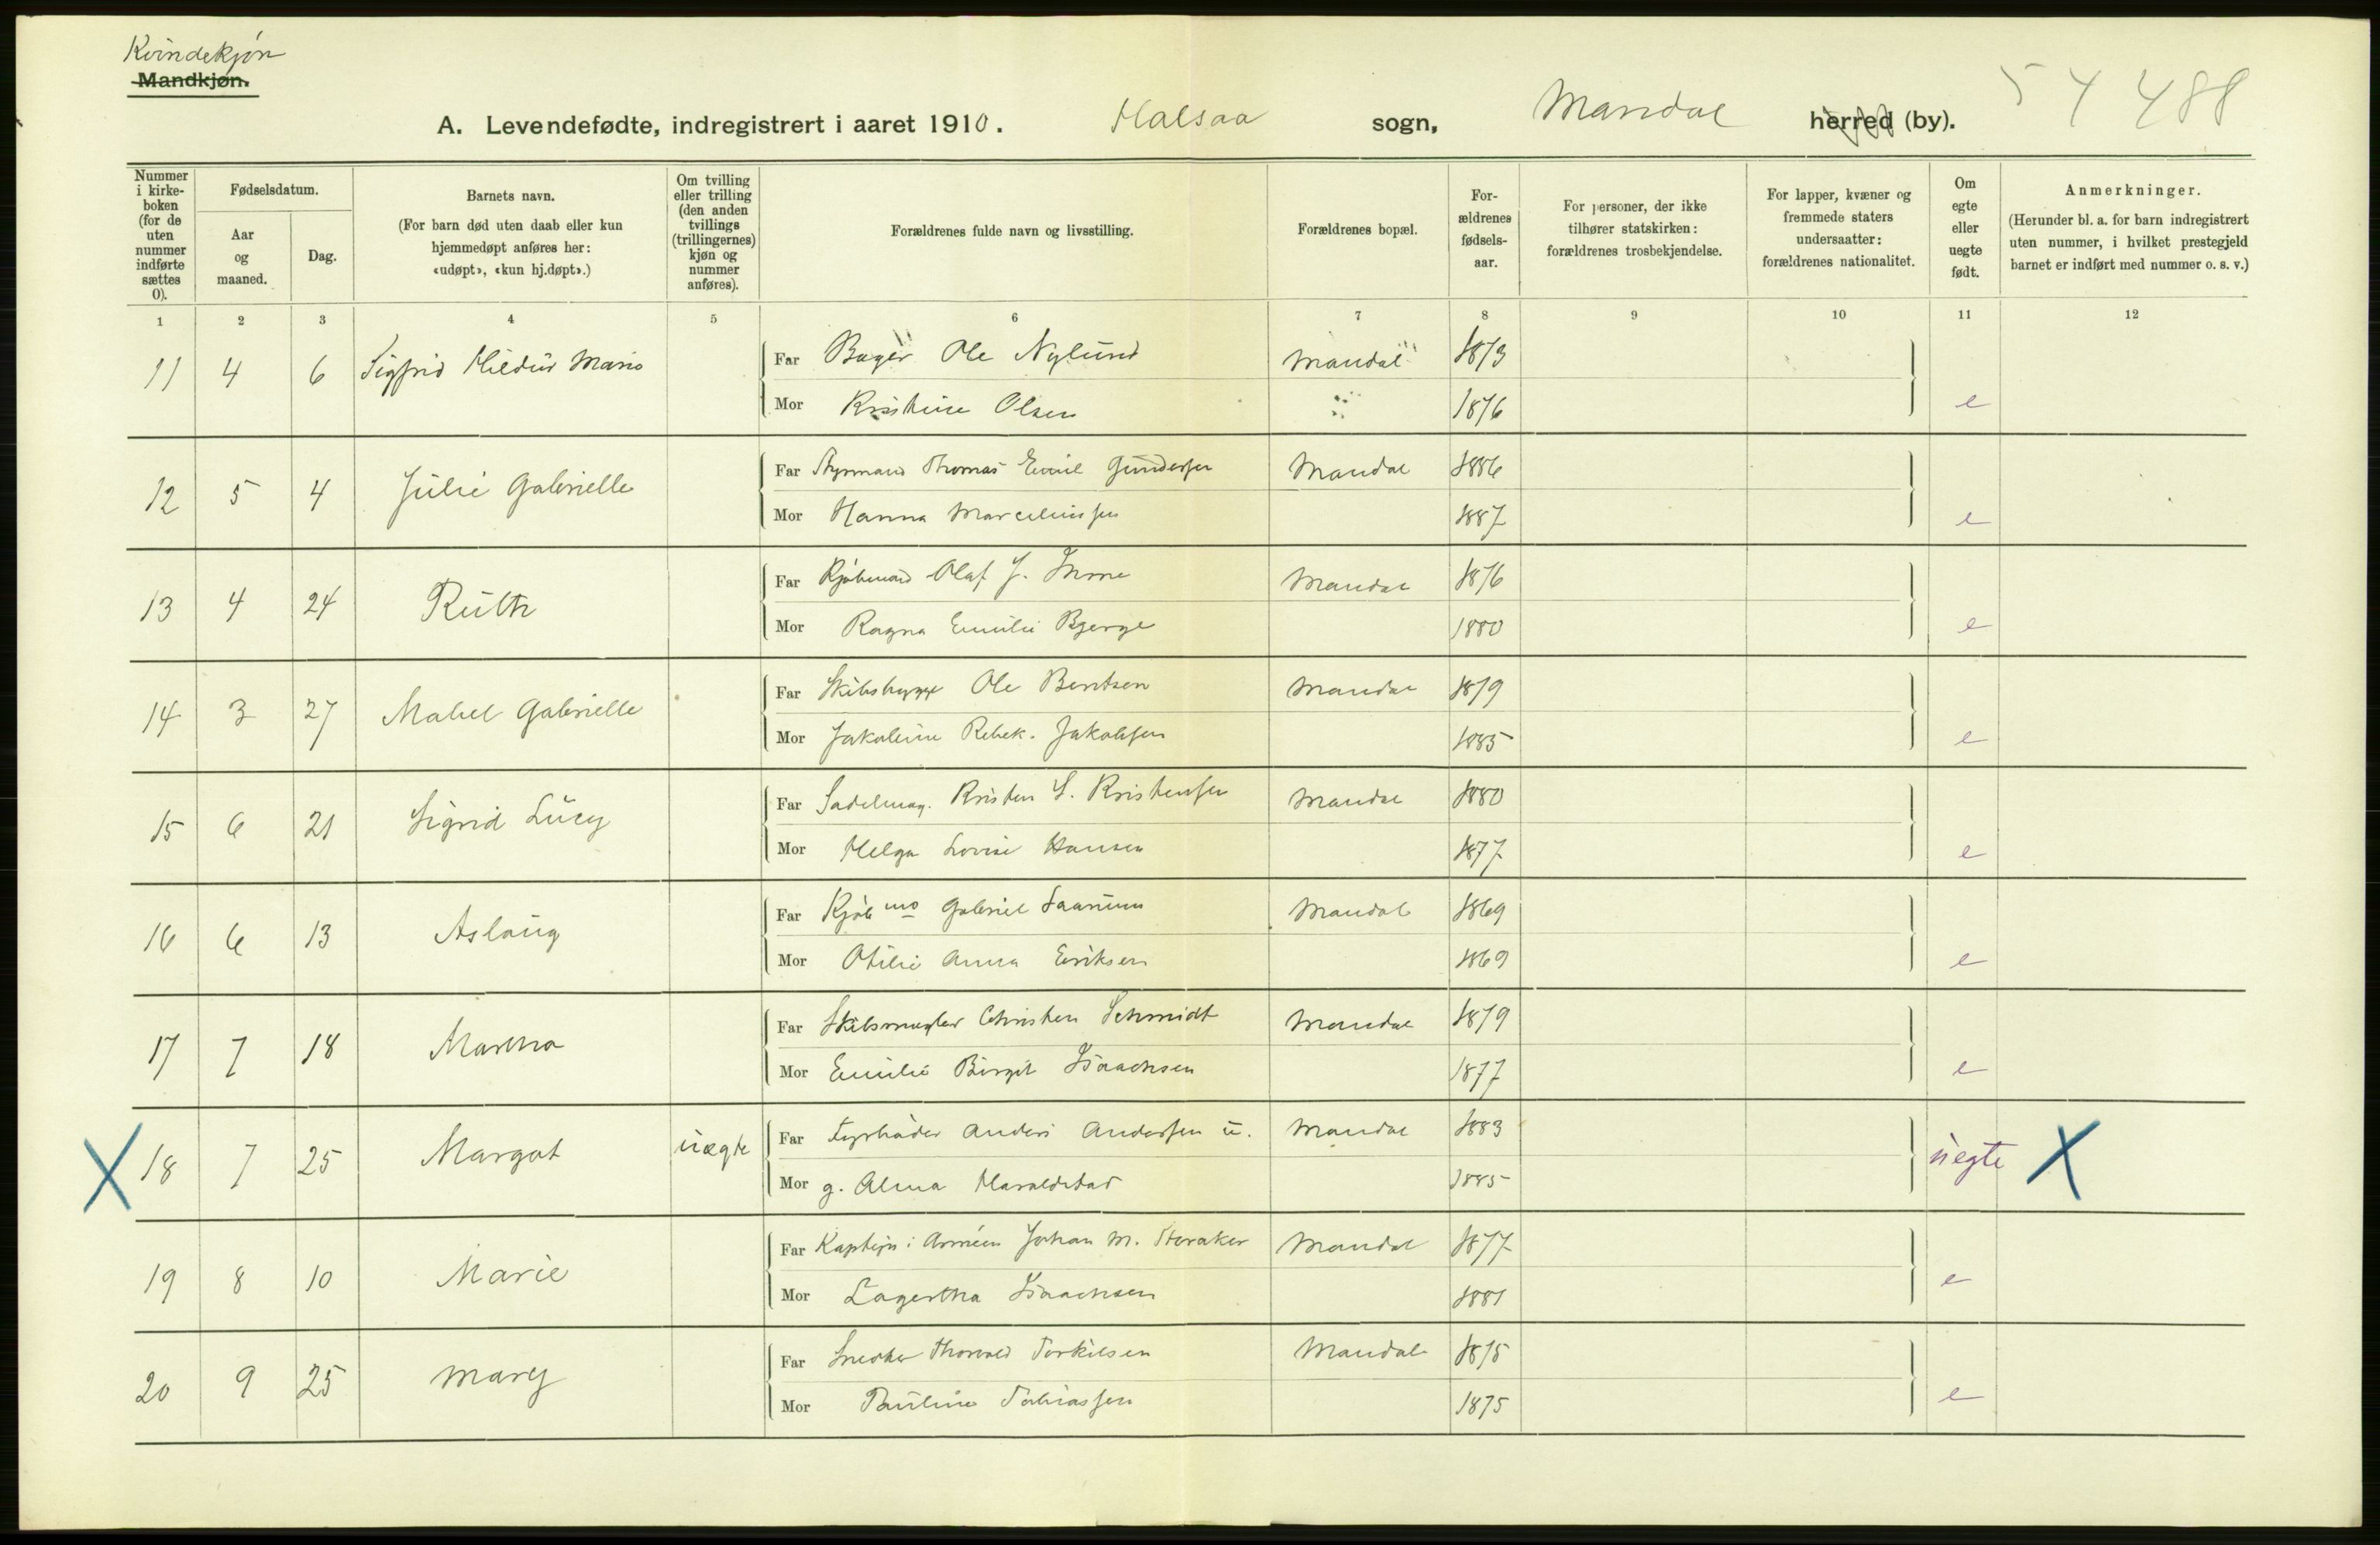 Kvindekjøn
Mandkjøn.
A. Levendefødte, indregistrert i aaret 1910. Halsaa sogn, Mandal herred (by). 54 488
Nummer i kirkeboken (for de uten nummer indførte sættes 0).
Fødselsdatum.
Aar og maaned.
Dag.
Barnets navn.
(For barn død uten daab eller kun hjemmedøpt anføres her: «udøpt», «kun hj.døpt».)
Om tvilling eller trilling (den anden tvillings (trillingernes) kjøn og nummer anføres).
Forældrenes fulde navn og livsstilling.
Forældrenes bopæl.
Forældrenes fødselsaar.
For personer, der ikke tilhører statskirken: forældrenes trosbekjendelse.
For lapper, kvæner og fremmede staters undersaatter: forældrenes nationalitet.
Om egte eller uegte født.
Anmerkninger.
(Herunder bl. a. for barn indregistrert uten nummer, i hvilket prestegjeld barnet er indført med nummer o. s. v.)
1 2 3 4 5 6 7 8 9 10 11 12
11 4 6 Sigfrid Hildur Marie Far Bager Ole Nylund Mandal 1873
Mor Kristine Olsen " 1876 e
12 5 4 Julie Gabrielle Far Styrmand Thomas Emil Gundersen Mandal 1886
Mor Hanna Marceliussen 1887 e
13 4 24 Ruth Far Kjøbmand Olaf J. Mandal 1876
Mor Ragna Emilie Bjerge 1880 e
14 3 27 Mabel Gabrielle Far Skibsbygg Ole Bentsen Mandal 1879
Mor Jakobine Rebek. Jakobsen 1885 e
15 6 21 Sigrid Lucy Far Sadelmag. Kristen S. Kristensen Mandal 1880
Mor Helga Lovise Hansen 1877 e
16 6 13 Aslaug Far Kjøbmd Gabriel Saanum Mandal 1869
Mor Otilie Anna Eriksen 1869 e
17 7 18 Martha Far Skibsmægler Christen Schmidt Mandal 1879
Mor Emilie Birgit Isaachsen 1877 e
X 18 7 25 Margot uægte Far Fyrbøder Anders Andersen u. Mandal 1883
Mor g. Alma Haraldstad 1885 uegte X
19 8 10 Marie Far Kaptejn i Armeen Johan M. Storaker Mandal 1877
Mor Lagertha Isaachsen 1881 e
20 9 25 Mary Far Snedker Thorvald Torkilsen Mandal 1875
Mor Pauline Tobiassen 1875 e